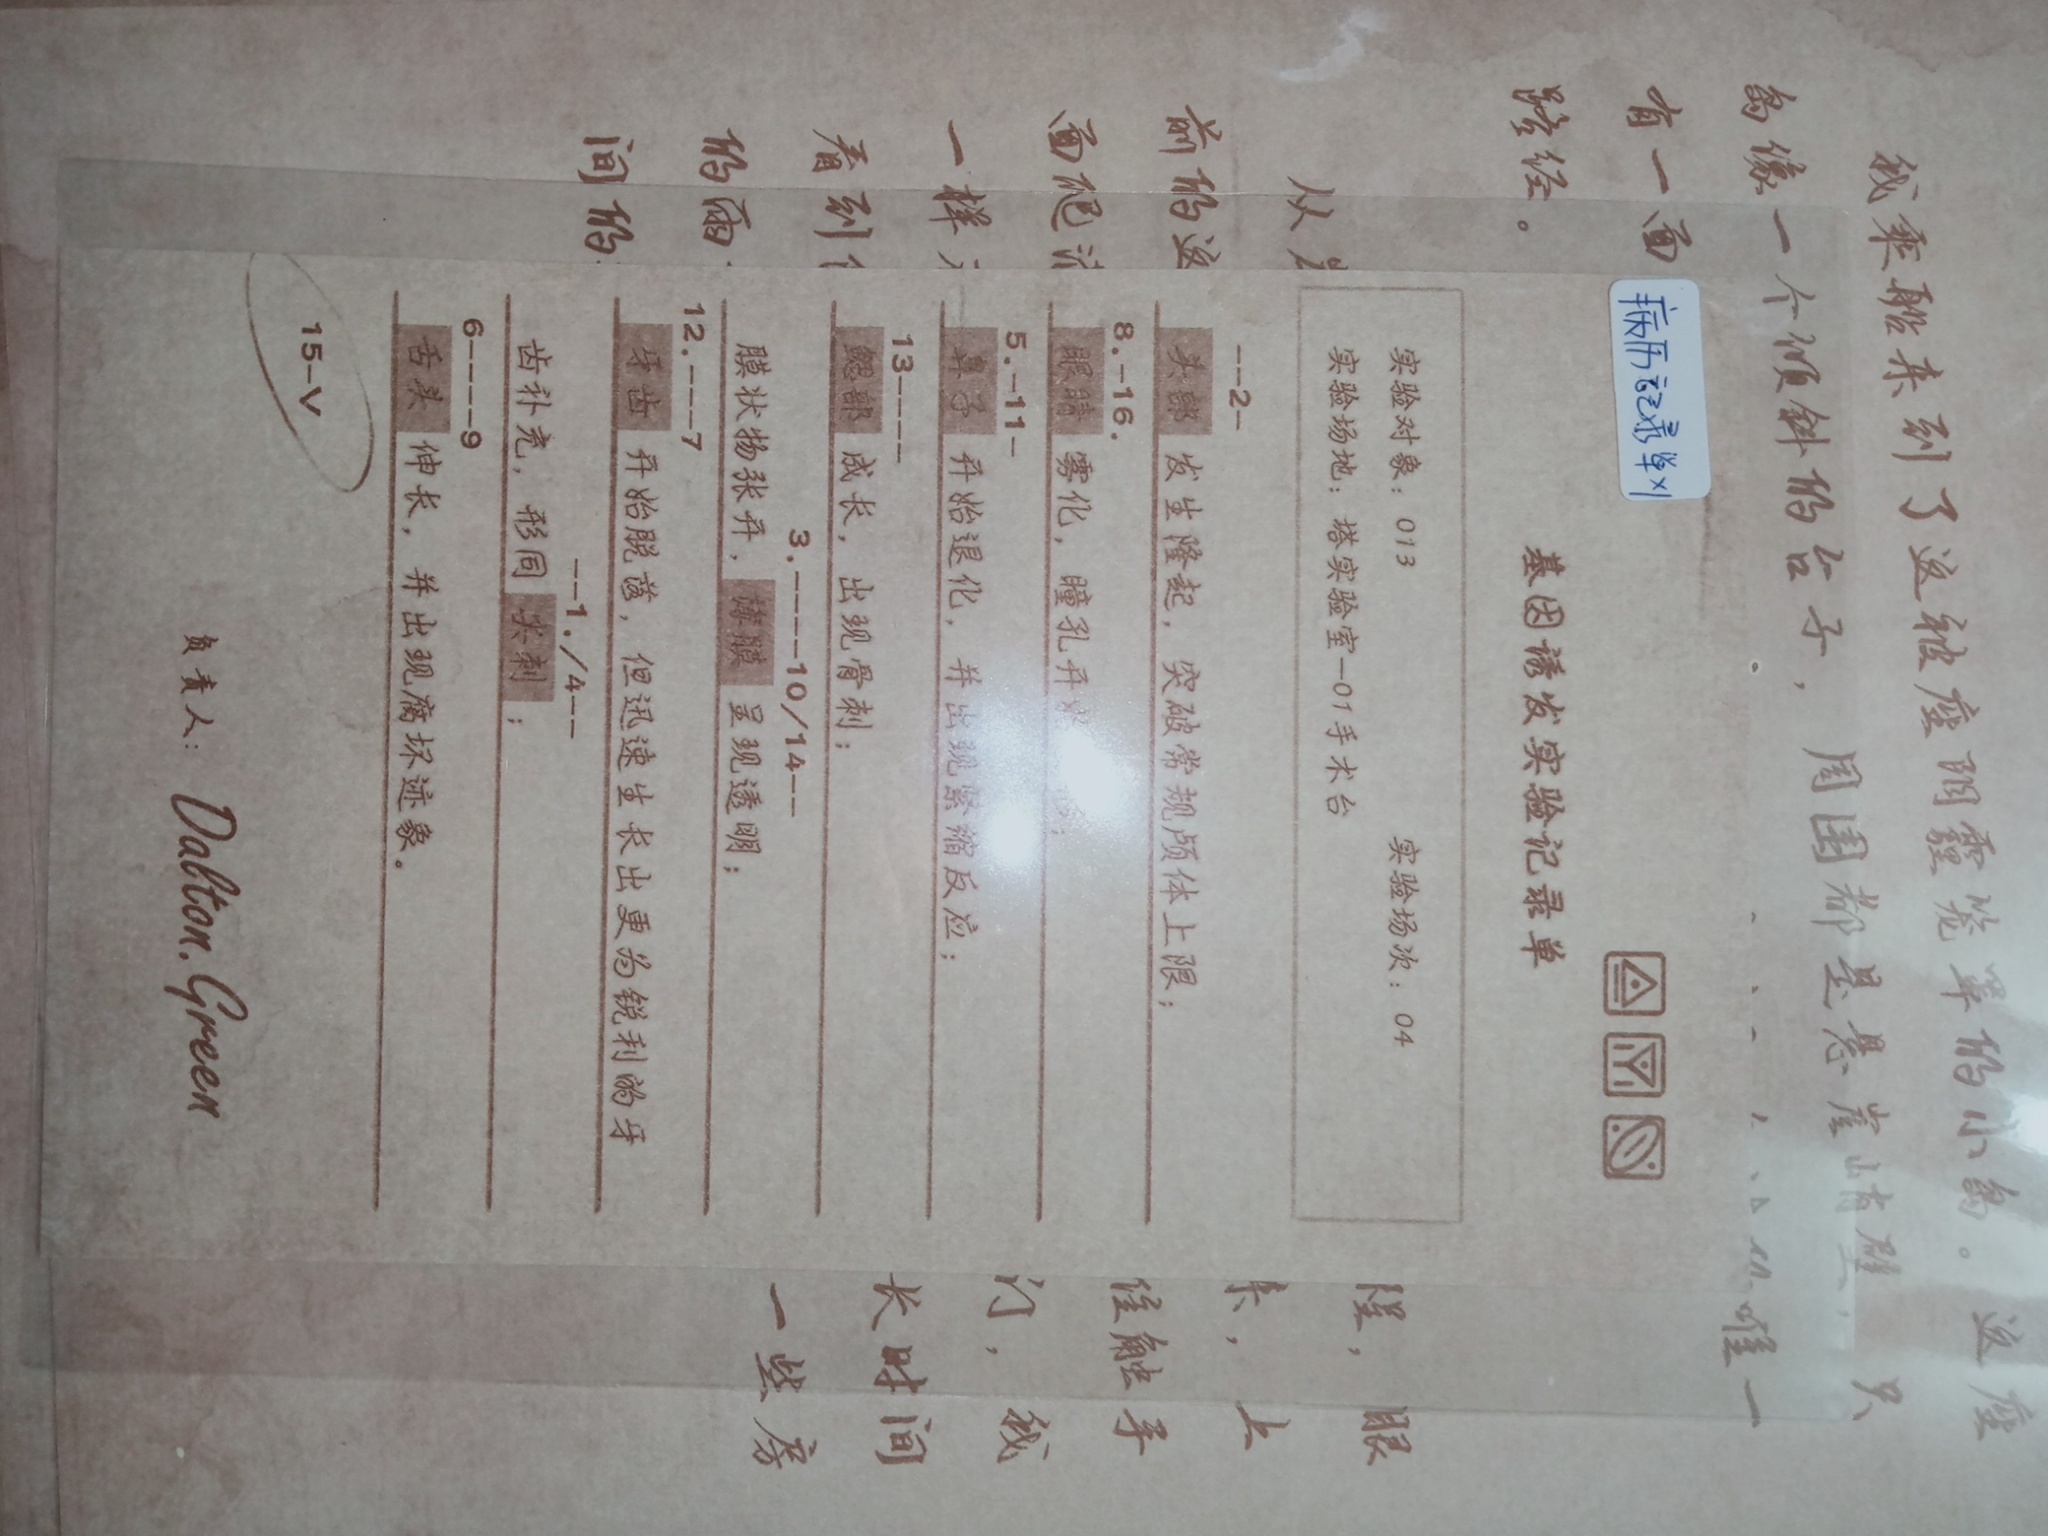 我乘船来到了这被座阴霾笼罩的小岛。这座
岛像一个倾斜的台子，周围都是悬崖峭壁，只
有一面
唯一
路径。
病历记录单x1
基因诱发实验记录单
实验对象：013 实验场次：04
实验场地：塔实验室-01手术台
--2-
头部 发生隆起，突破常规颅体上限；
8.-16.
眼睛 雾化，瞳孔开
5.-11-
鼻子 开始退化，并出现紧缩反应；
13----
鳃部 成长，出现骨刺；
3.----10/14--
膜状物张开，薄膜 呈现透明；
12.---7
牙齿 开始脱落，但迅速生长出更为锐利的牙
--1./4--
齿补充，形同 尖刺；
6----9
舌头 伸长，并出现腐坏迹象。
15-V
负责人：Dalton.Green
从
眼
前的这
，上
面爬
触手
一样
门，我
看到
长时间
的雨
一些房
间的